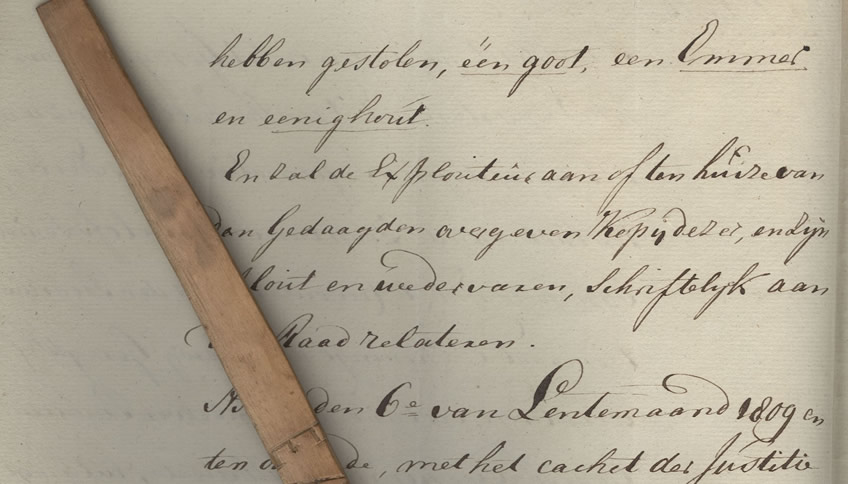 hebben gestolen, één goot, een Emmer
en eenighout.
En zal de Exploiteur aan of ten huize van
den Gedaagden overgeven Kopij dezer, en zijn
ploit en wedervaren, schriftelijk aan
Raad relateren.
den 6e van Lentemaand 1809 en
ten de, met het cachet der Justitie